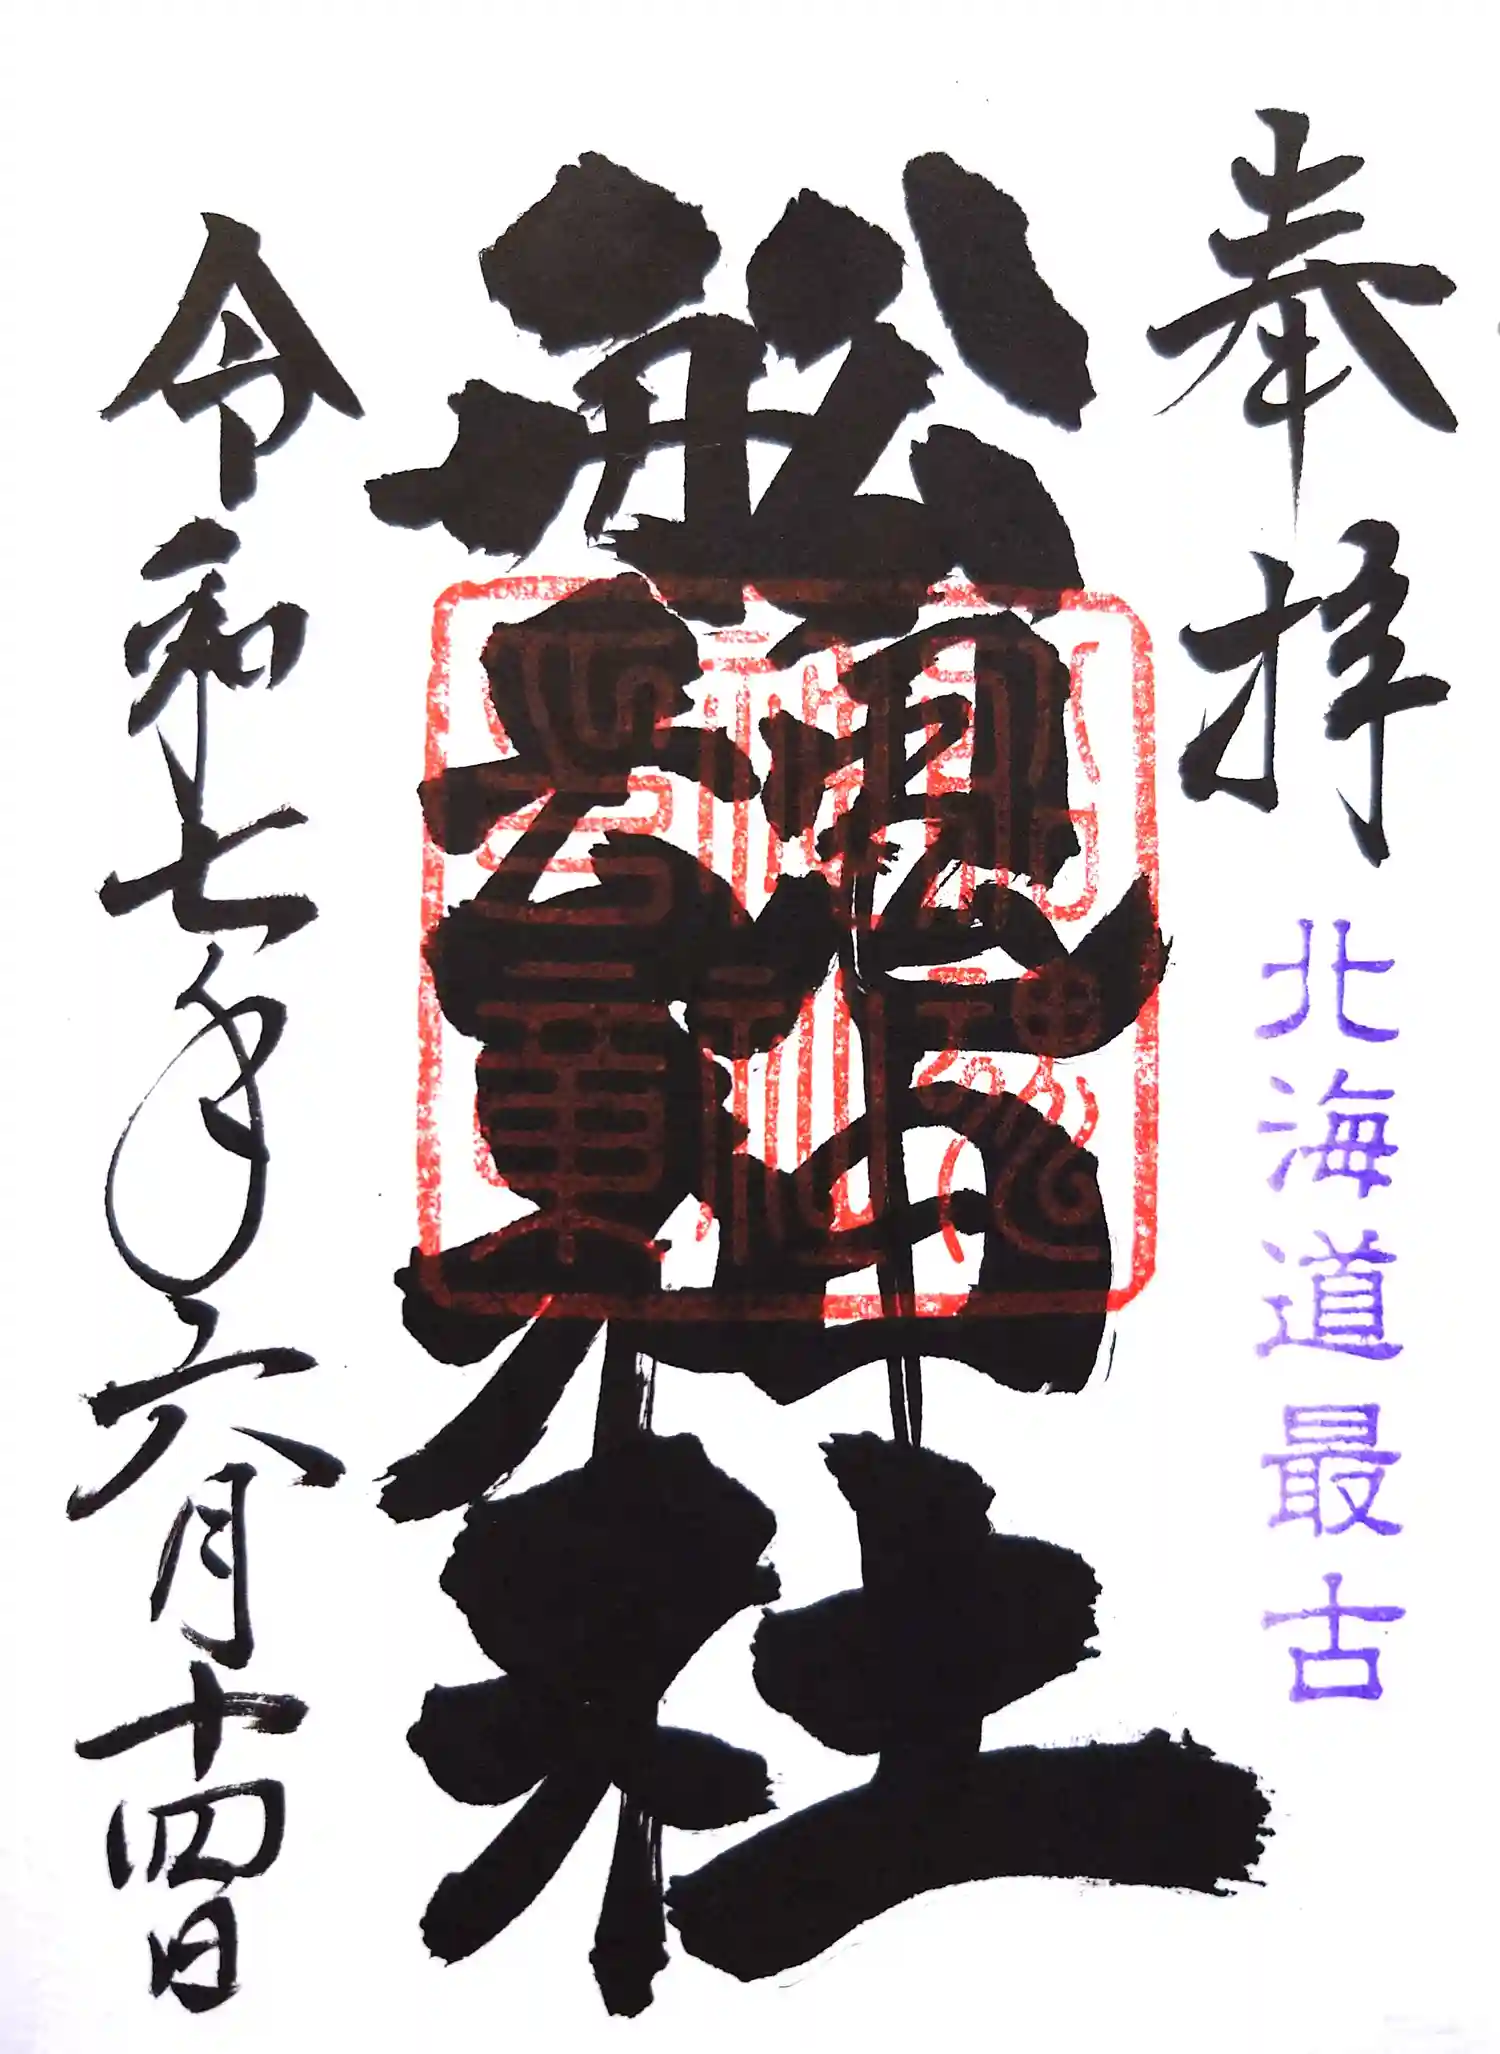 奉拝
北海道最古
舩魂神社
令和七年六月十四日